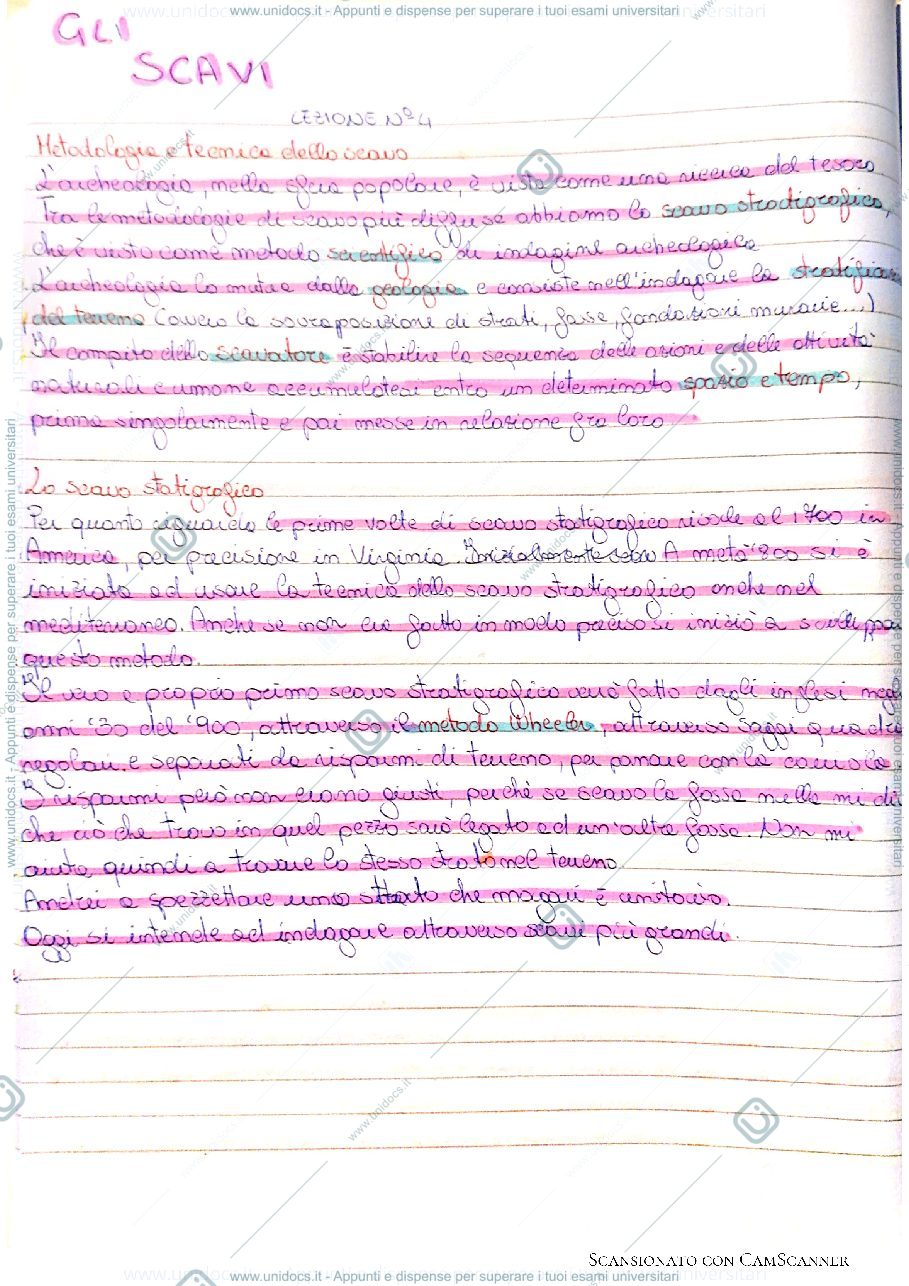 www.unidocs.it - Appunti e dispense per superare i tuoi esami universitari
GLI
SCAVI
LEZIONE N°4
Metodologia e tecnica dello scavo
L'archeologia, nella sfera popolare, è vista come una ricerca del tesoro
Tra le metodologie di scavo più diffuse abbiamo lo scavo stratigrafico,
che è visto come metodo scientifico di indagine archeologica
L'archeologia lo mutua dalla geologia e consiste nell'indagare la
del terreno (ovvero la sovrapposizione di strati, fosse, fondazioni murarie...)
Il compito dello scavatore è stabilire la sequenza delle azioni e delle attività
naturali e umane accumulatesi entro un determinato spazio e tempo,
prima singolarmente e poi messe in relazione fra loro
Lo scavo statigrafico
Per quanto riguarda le prime volte di scavo statigrafico risale al 1700 in
America, per precisione in Virginia. A metà '800 si è
iniziato ad usare la tecnica dello scavo stratigrafico anche nel
mediterraneo. Anche se non era fatto in modo preciso si iniziò a
questo metodo.
Il vero e proprio primo scavo stratigrafico venne fatto dagli inglesi negli
anni '30 del '900, attraverso il metodo Wheeler, attraverso saggi
regolari e separati da risparmi di terreno, per passare con la carriola
I risparmi però non erano giusti, perché se scavo la fossa
che ciò che trovo in quel pezzo sarà legato ad un'altra fossa. Non mi
aiuta quindi a trovare lo stesso strato nel terreno.
Andrei a spezzettare uno strato che magari è unitario.
Oggi si intende ad indagare attraverso scavi più grandi.
SCANSIONATO CON CAMSCANNER
www.unidocs.it - Appunti e dispense per superare i tuoi esami universitari